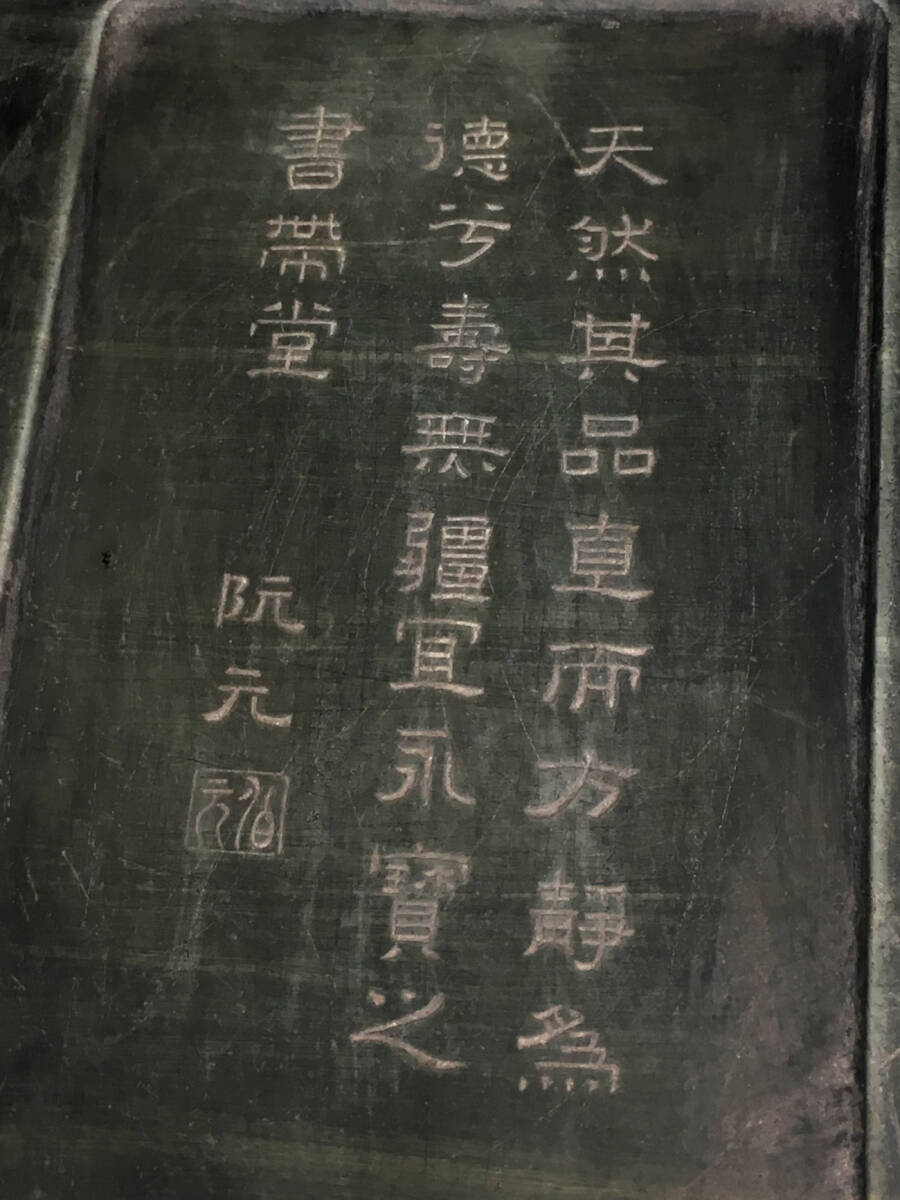 天然其品直而方靜為
德兮壽無疆宜永寶之
書帶堂 阮元
伯元